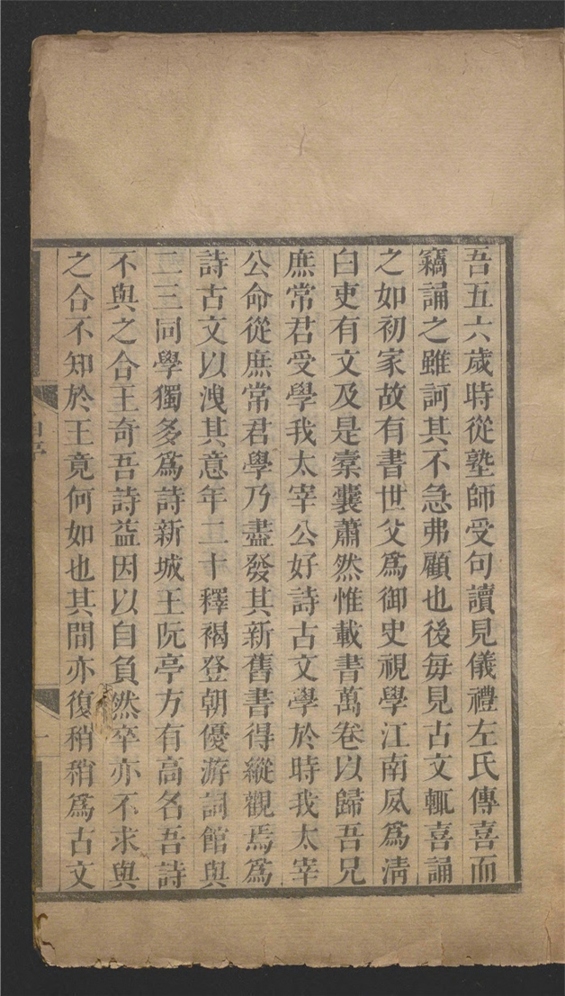 吾五六歲時從塾師受句讀見儀禮左氏傳喜而
竊誦之雖訶其不急弗顧也後每見古文輒喜誦
之如初家故有書世父爲御史視學江南夙爲清
白吏有文及是橐囊蕭然惟載書萬卷以歸吾兄
庶常君受學我太宰公好詩古文學於時我太宰
公命從庶常君學乃盡發其新舊書得縱觀焉爲
詩古文以洩其意年二十釋褐登朝優游詞館與
二三同學獨多爲詩新城王阮亭方有高名吾詩
不與之合王奇吾詩益因以自負然卒亦不求與
之合不知於王竟何如也其間亦復稍稍爲古文
一